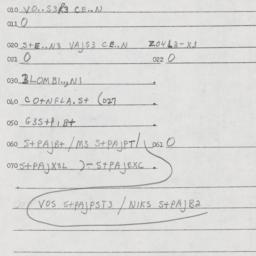 010 VO..S3R3 CE..N
011 0
020 S+E..N3 VAJS3 CE..N Z04L3-X3
021 0 022 0
030 BLOMBI..,N1
040 CO+NFLA.S+ (027
050 G3S+PIB+
060 S+PAJB+/M3 S+PAJPT/ 061 0
070 S+PAJX3L )-S+PAJEXC
VOS S+PAJPST3 / NIKS S+PAJB2